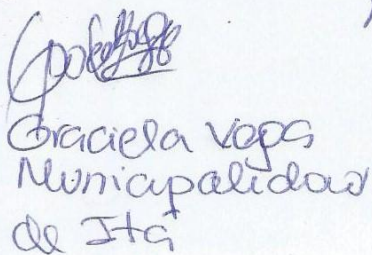 Graciela Vega
Municipalidad
de Itá